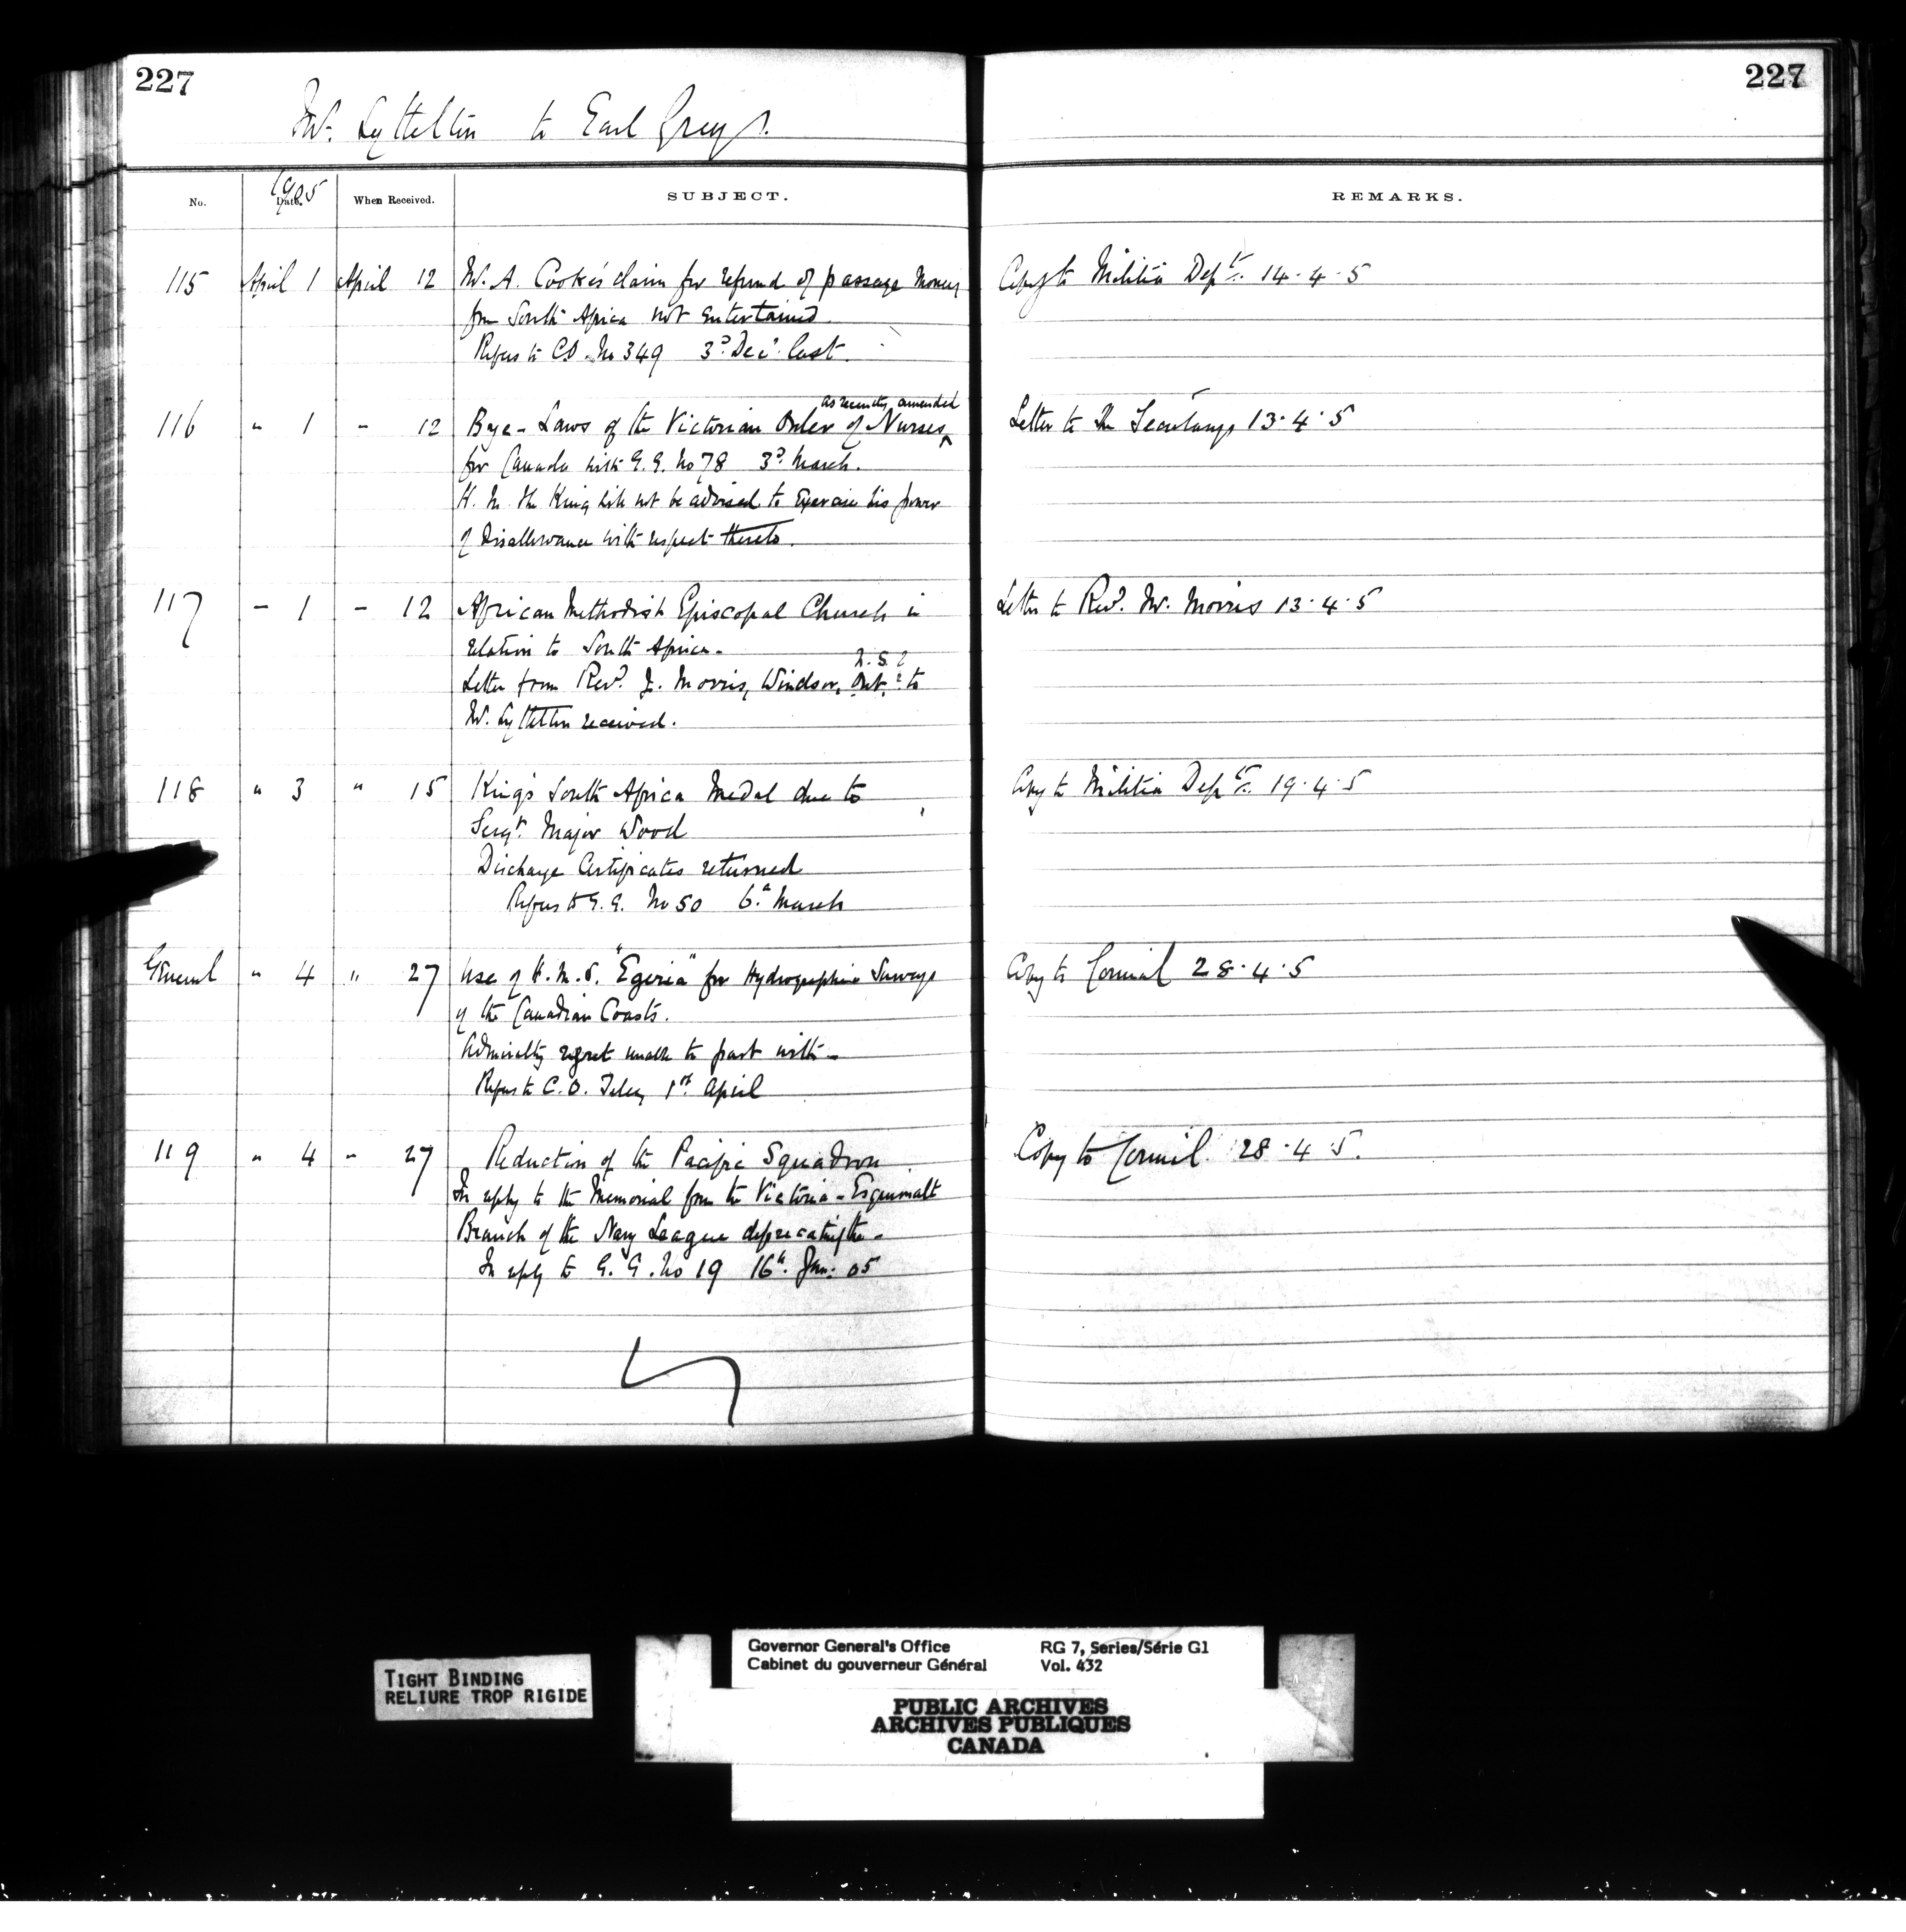 227
227
Mr. Lyttelton to Earl Grey.
No.
1905
Date.
When Received.
SUBJECT.
REMARKS.
115 April 1 April 12 W. A. Cooke's claim for refund of passage money Copy to Militia Dept. 14.4.5
from South Africa not entertained
Refers to C.O. No 349 3d. Decr. last.
as recently amended
116 " 1 - 12 Bye-Laws of the Victorian Order of Nurses ^ Letter to the Secretary 13.4.5
for Canada with G.G. No 78 3d. March.
H. M. the King will not be advised to exercise his power
of Disallowance with respect thereto.
117 - 1 - 12 African Methodist Episcopal Church in Letter to Revd. Mr. Morris 13.4.5
relation to South Africa.
N.S.?
Letter from Revd. J. Morris, Windsor, Ont.? to
Mr. Lyttelton received.
118 " 3 " 15 King's South Africa Medal due to Copy to Militia Dept. 19.4.5
Sergt. Major Wood
Discharge Certificates returned
Refers to G.G. No 50 6th. March
General " 4 " 27 Use of H.M.S. "Egeria" for Hydrographic Surveys Copy to Council 28.4.5
of the Canadian Coasts.
Admiralty regret unable to part with -
Refers to C.O. Teleg 1st. April
119 " 4 " 27 Reduction of the Pacific Squadron Copy to Council 28.4.5.
In reply to the Memorial from the Victoria-Esquimalt
Branch of the Navy League deprecating the -
In reply to G.G. No 19 16th. Jan: 05
TIGHT BINDING
RELIURE TROP RIGIDE
Governor General's Office RG 7, Series/Série G1
Cabinet du gouverneur Général Vol. 432
PUBLIC ARCHIVES
ARCHIVES PUBLIQUES
CANADA